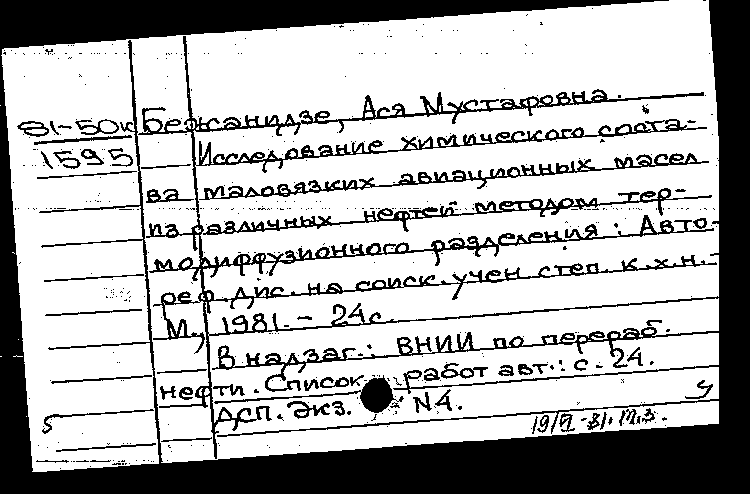 81-50к Бежанидзе, Ася Мустафовна.
1595 Исследование химического соста-
ва маловязких авиационных масел
из различных нефтей методом тер-
модиффузионного разделения : Авто-
реф. дис. на соиск. учен степ. к.х.н. -
М., 1981. - 24с.
В надзаг.: ВНИИ по перераб.
нефти. Список работ авт.: с. 24.
ДСП. Экз. N4.
5